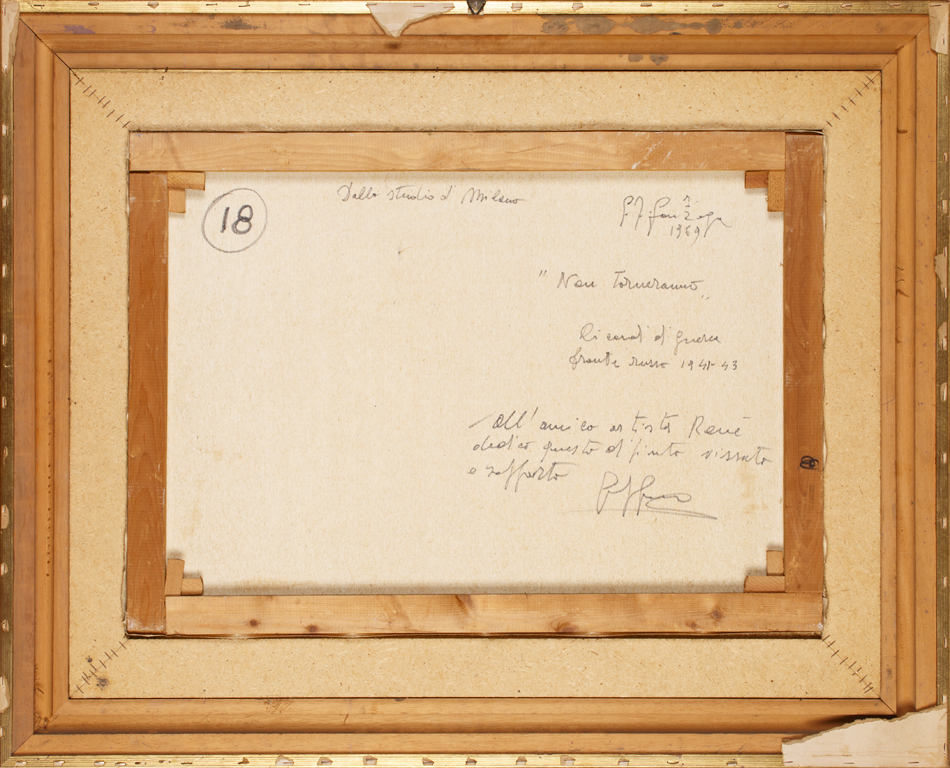 18
Dallo studio di Milano
1969
" Non torneranno "
Ricordi di guerra
fronte russo 1941-43
All'amico artista René
dedico questo dipinto vissuto
e sofferto